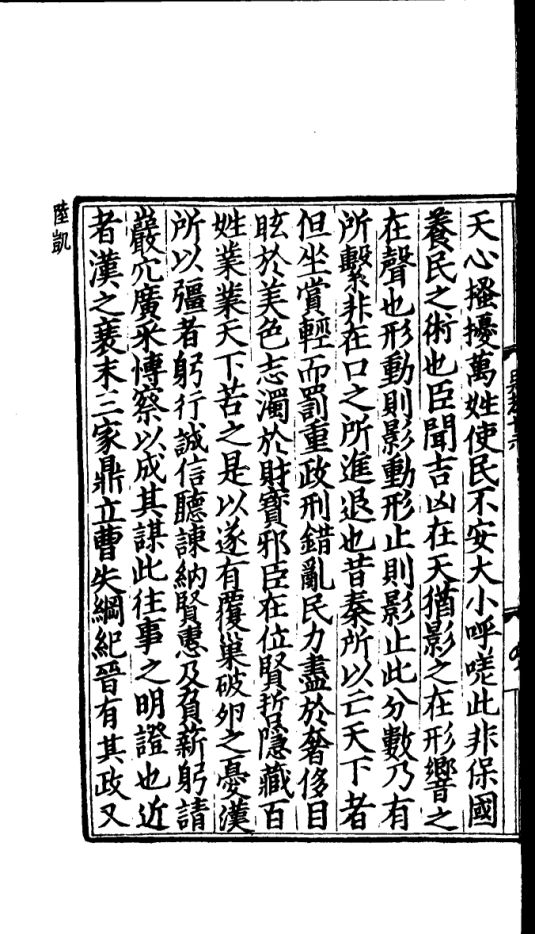 天心搔擾萬姓使民不安大小呼嗟此非保國
養民之術也臣聞吉凶在天猶影之在形響之
在聲也形動則影動形止則影止此分數乃有
所繫非在口之所進退也昔秦所以亡天下者
但坐賞輕而罰重政刑錯亂民力盡於奢侈目
眩於美色志濁於財寶邪臣在位賢哲隱藏百
姓業業天下苦之是以遂有覆巢破卵之憂漢
所以彊者躬行誠信聽諫納賢惠及負薪躬請
巖穴廣采博察以成其謀此往事之明證也近
者漢之衰末三家鼎立曹失綱紀晉有其政又
陸凱